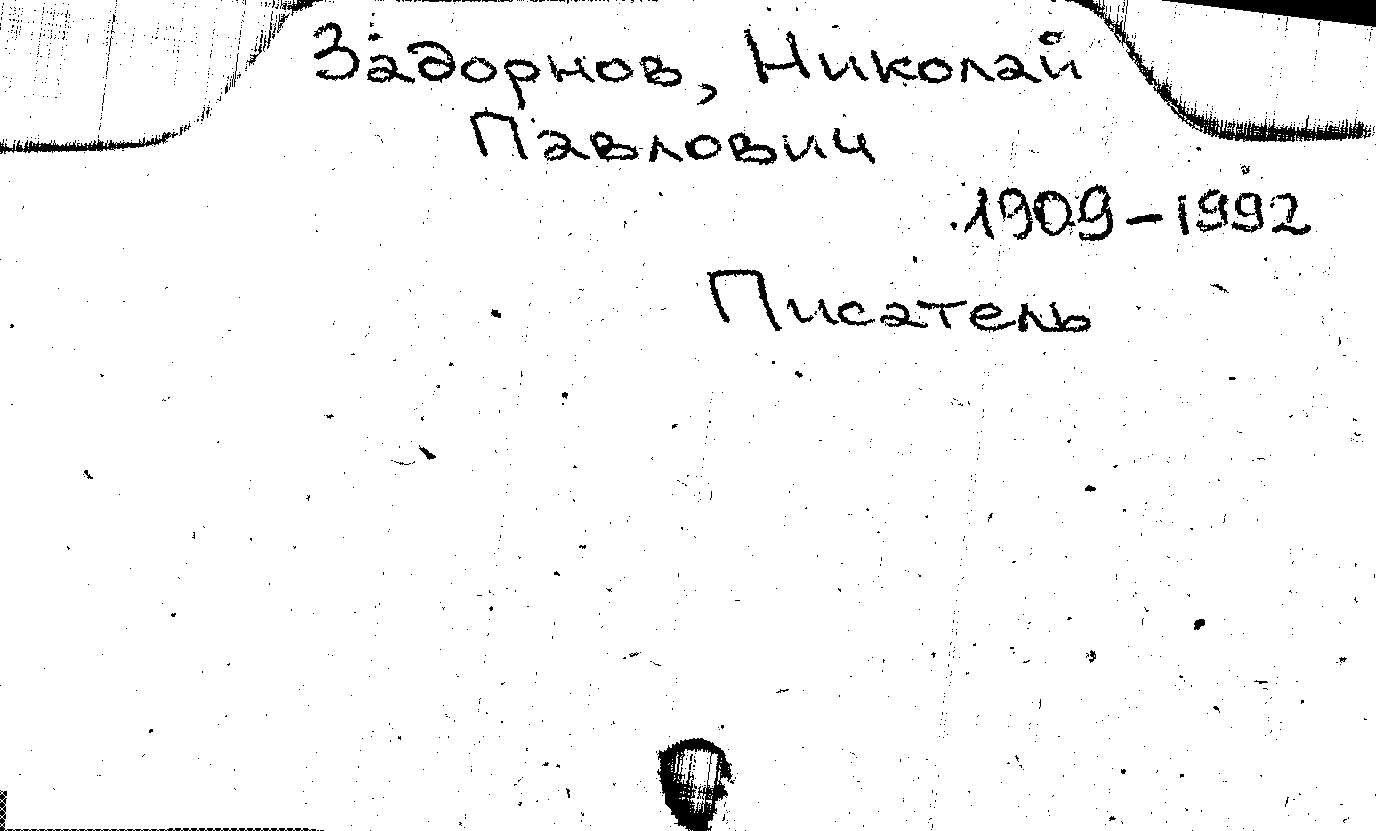 Задорнов, Николай
Павлович
1909-1992
Писатель